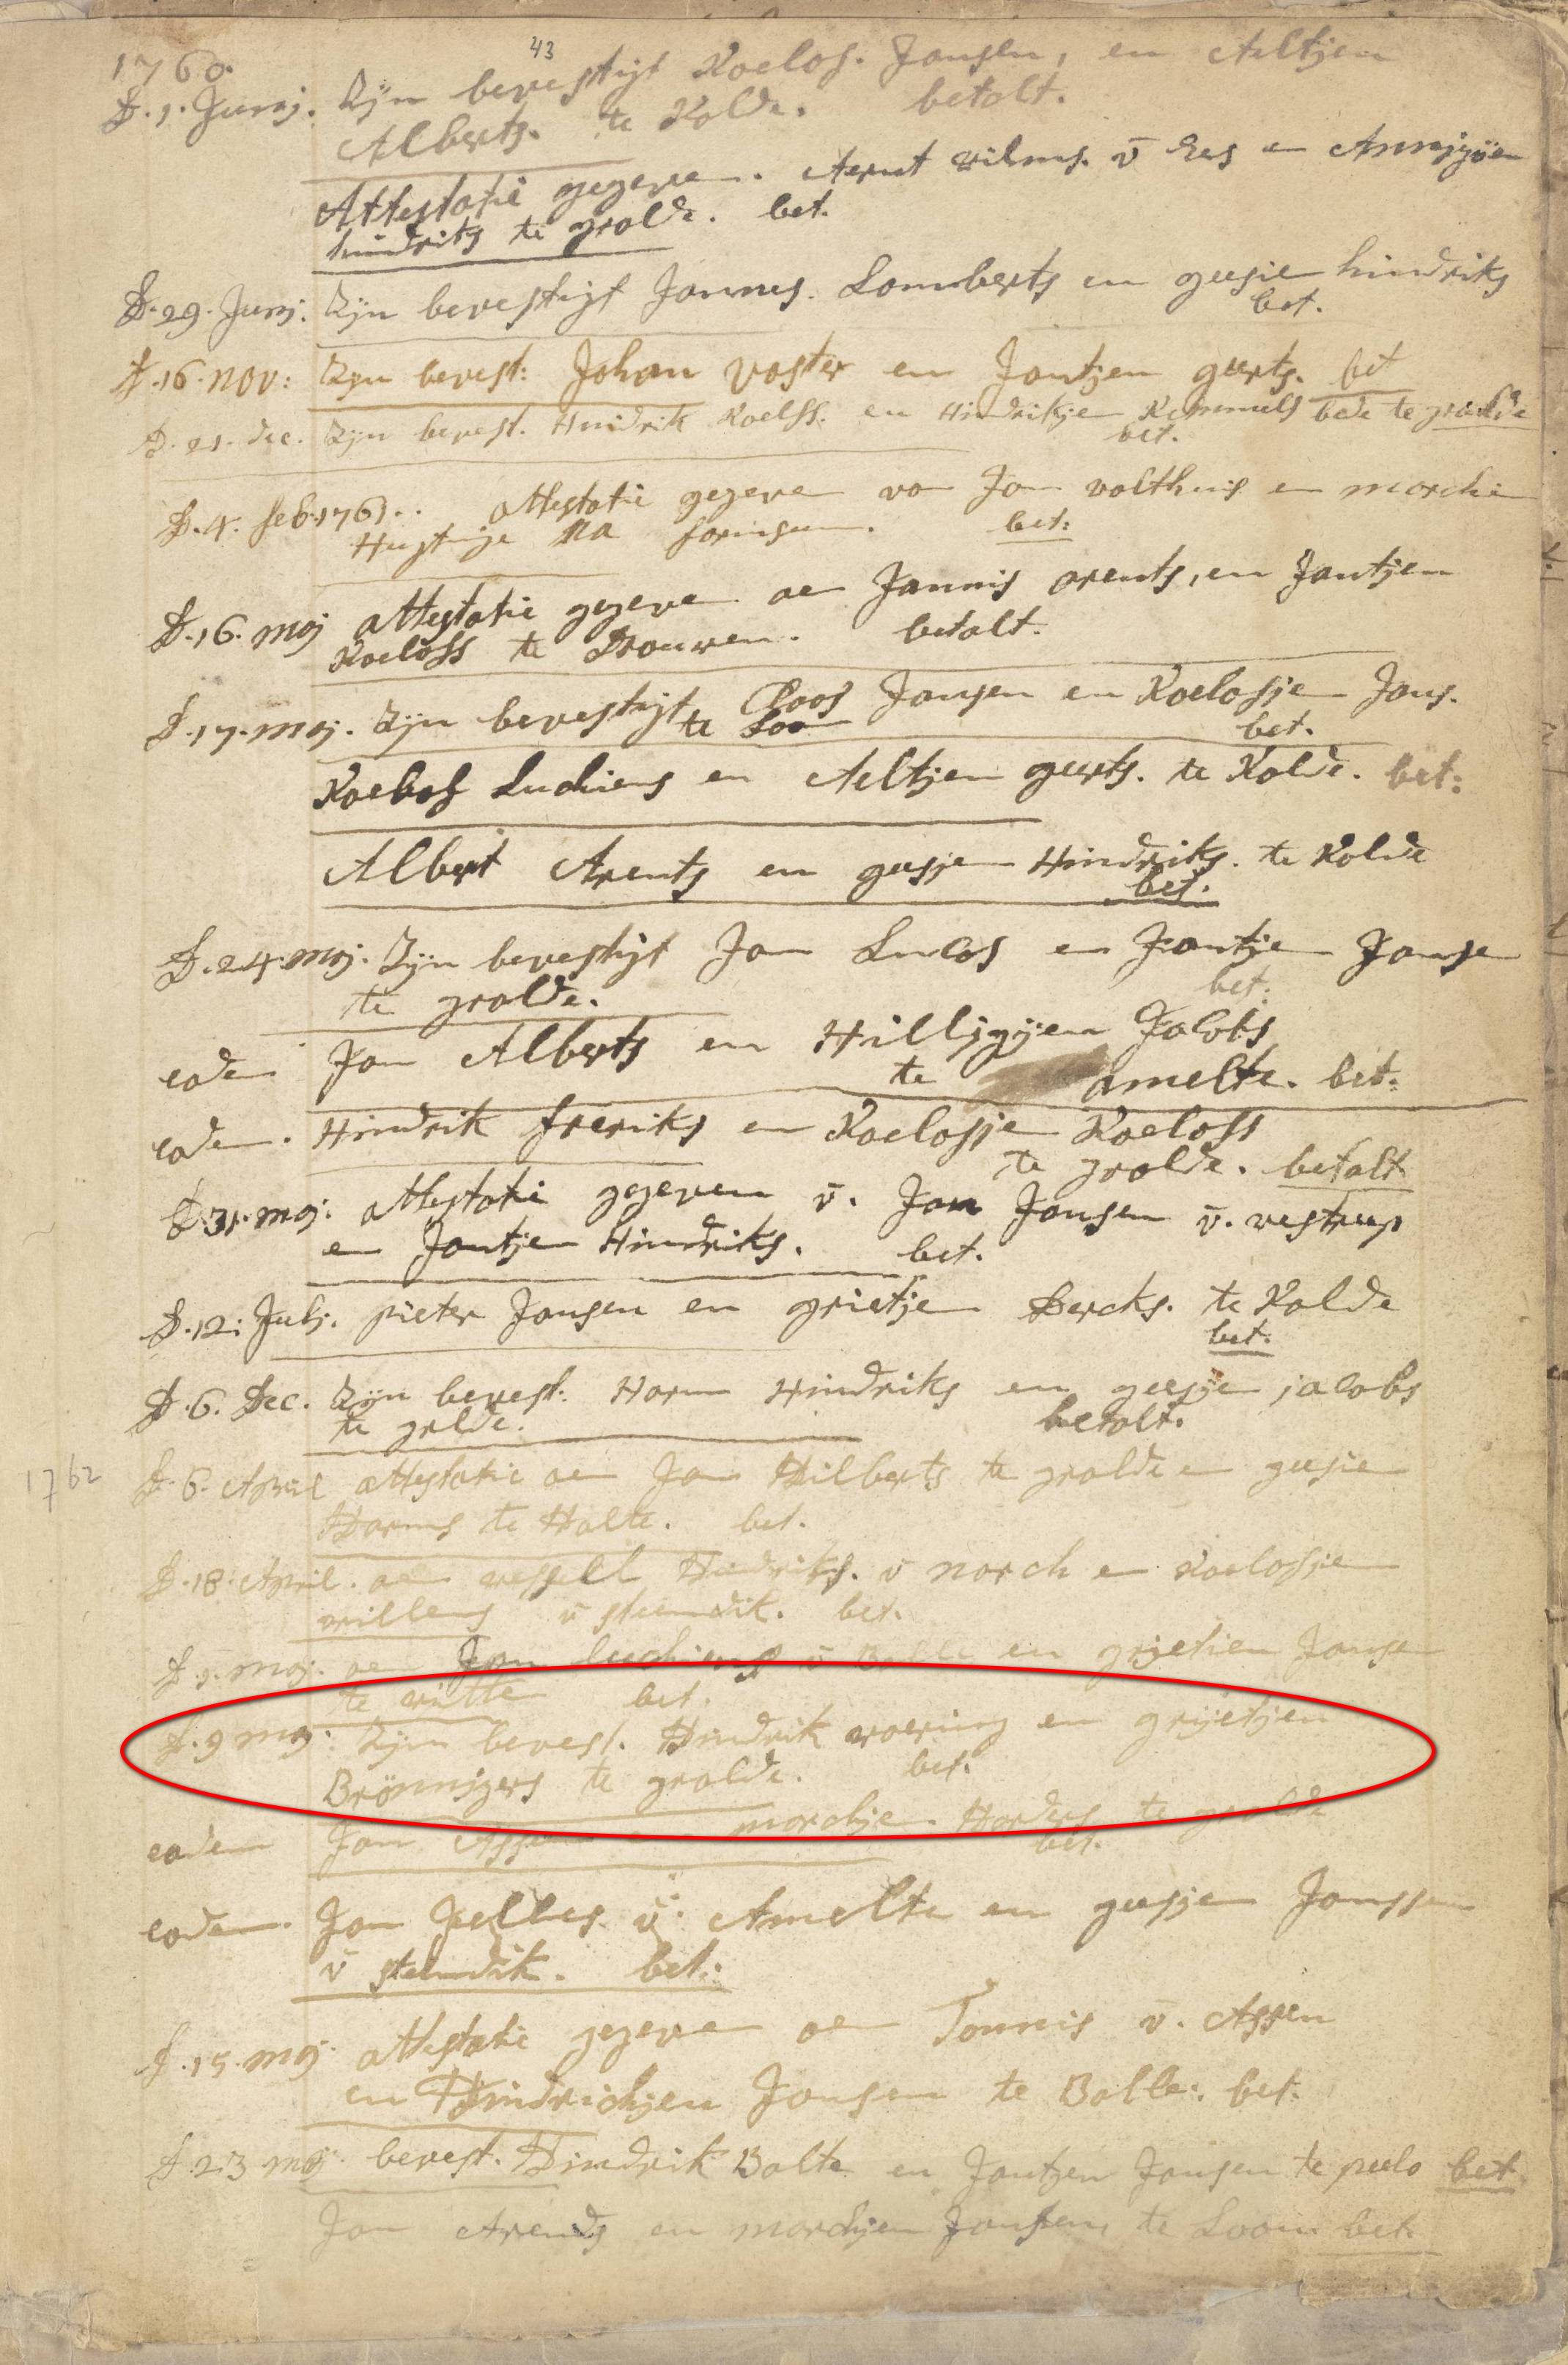 43
1760.
D. 1. Junij. Zijn bevestigt Roelof. Jansen, en Aeltjen
Alberts. te Rolde. betalt.
Attestatie gegeve. Aernt wilms. v̄ Ees en Annigjen
hindriks te grolde. bet.
D. 29. Junij. Zijn bevestigt Jannes. Lamberts en geesie hindriks
bet.
D. 16. nov: Zijn bevest: Johan Voster en Jantjen geerts. bet
D. 21. dec. Zijn bevest. Hindrik Roelfs. en Hindrikje Remmels bede te grolde
bet.
D. 4. feb. 1761.. attestatie gegeve van Jan walthuis en marchi
Huginge na farmsum. bet:
D. 16. maj attestatie gegeve aen Jannis arents, en Jantjen
Roelofs te Drouwen. betalt.
D. 17. maj. Zijn bevestigt Claas Jansen en Roelofje Jans.
te Loon bet.
Roelof Luchiens en Aeltjen geerts. te Rolde. bet:
Albert Arents en geesje Hindriks. te Rolde
bet.
D. 24. maj. Zijn bevestigt Jan Lucas en Jantje Janse
te grolde. bet:
eode Jan Alberts en Hilligjen Jacobs
te amelte. bet:
eode. Hindrik freriks en Roelofje Roelofs
te grolde. betalt
D. 31. maj. attestatie gegeven v̄. Jan Jansen v̄. westrup
en Jantje Hindriks. bet.
D. 12: Julij. pieter Jansen en grietje Dercks. te Rolde
bet.
D. 6. Dec. Zijn bevest: Harm Hindriks en geesje jacobs
te grlde. betalt.
1762
D. 6. April attestatie aen Jan Hilberts te grolde en geesie
Harms te Halte. bet.
D. 18. April. aen wessell Hindriks. v̄ norch en Roelofje
willems v̄ steendik. bet.
D. 1. maj. aen Jan luchiens v̄ Balle en grijetien Janse
te witte bet.
D. 9 maj. Zijn bevest. Hindrik woering en grijetjen
Brönnigers te grolde. bet.
eodem Jan Assen en marchje Harders te grolde
bet.
eode. Jan Jelles. v̄. Amelte en geesje Janssen
v̄ steendik. bet:
D. 15. maj. attestatie gegeve aen Tonnis v. Assen
en Hindrichjen Jansen te Balle. bet.
D. 23 maj. bevest. Hindrik Balte en Jantjen Jansen te peelo bet
Jan Arends en marchjen Jansen, te Loon bet.